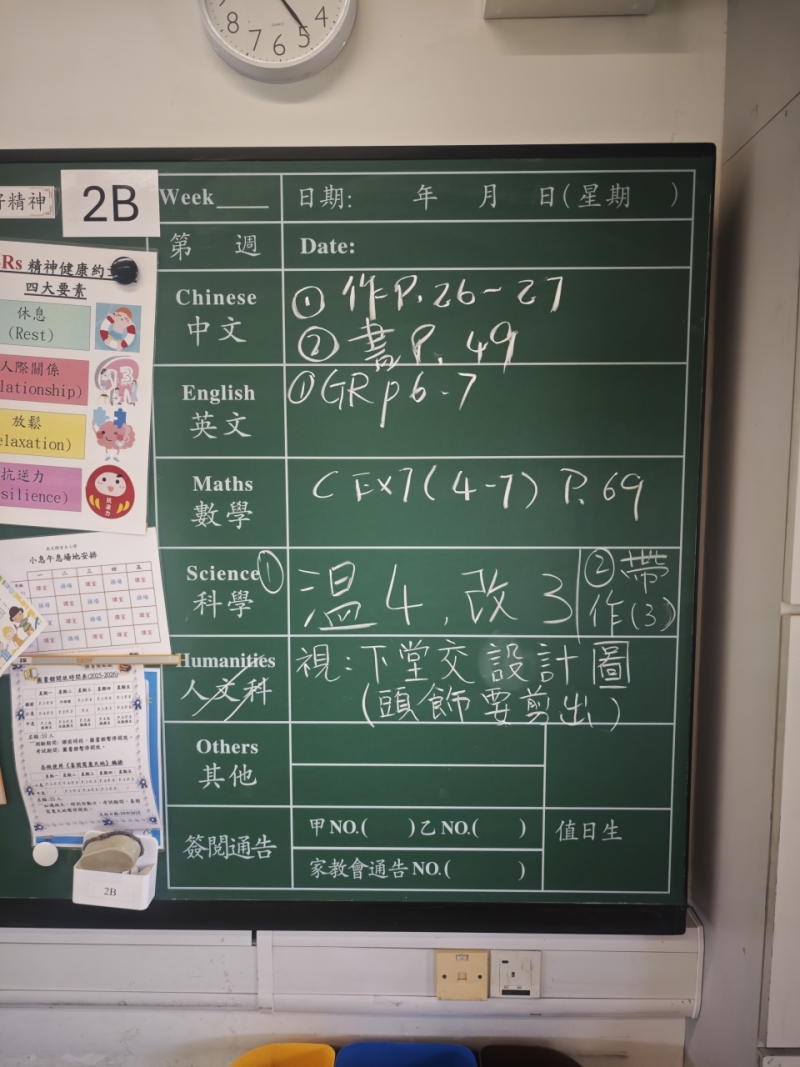 8 7 6 5 4
好精神
2B
Week
日期: 年 月 日(星期 )
第 週
Date:
Rs 精神健康約
四大要素
休息
(Rest)
人際關係
lationship)
放鬆
elaxation)
抗逆力
silience)
Chinese
中文
① 作P.26~27
② 書P.49
English
英文
① GR p6-7
Maths
數學
C Ex7(4-7) P.69
Science
科學
① 溫4,改3
② 帶
作(3)
Humanities
人文科
視:下堂交設計圖
(頭飾要剪出)
Others
其他
簽閱通告
甲NO.( )乙NO.( )
家教會通告NO.( )
值日生
小息午息場地安排
一 二 三 四 五
圖書館開放時間表(2025-2026)
2B